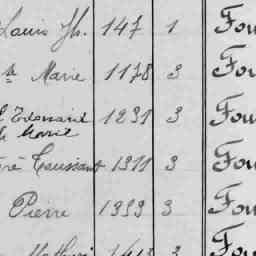 Louis Jh. 147 1 Fou
Marie 1178 3 Fou
Edouard 1231 3 Fou
Marie
Toussaint 1311 3 Fou
Pierre 1333 3 Fou
3 Fou